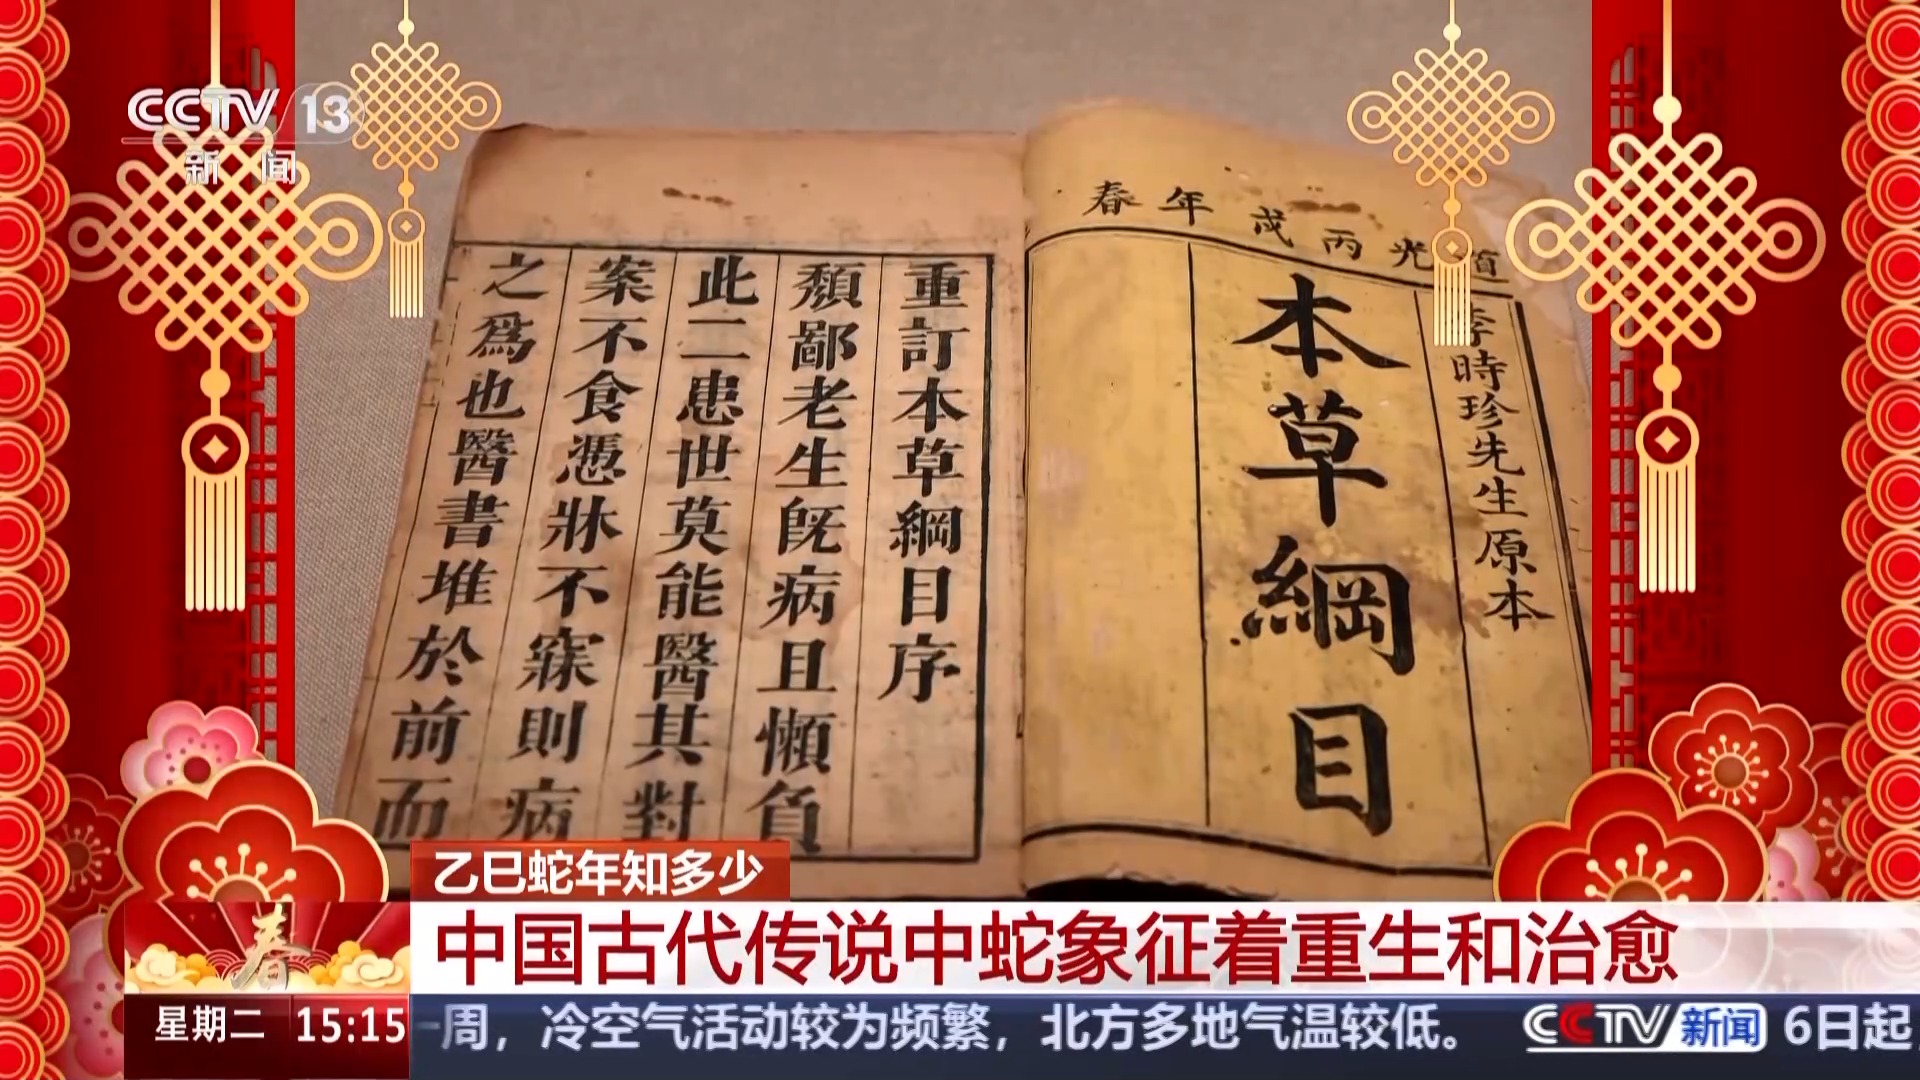 CCTV 13
新闻
春年戌丙光道
李時珍先生原本
本草綱目
重訂本草綱目序
頹鄙老生既病且懶負
此二患世莫能醫其對
案不食憑牀不寐則病
之爲也醫書堆於前而
乙巳蛇年知多少
中国古代传说中蛇象征着重生和治愈
春
星期二 15:15
一周，冷空气活动较为频繁，北方多地气温较低。 CCTV 新闻 6日起